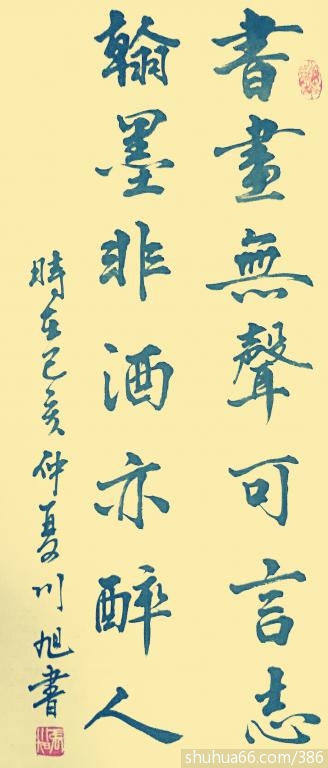 書畫無聲可言志
翰墨非酒亦醉人
時在己亥仲夏川旭書
shuhua66.com/386